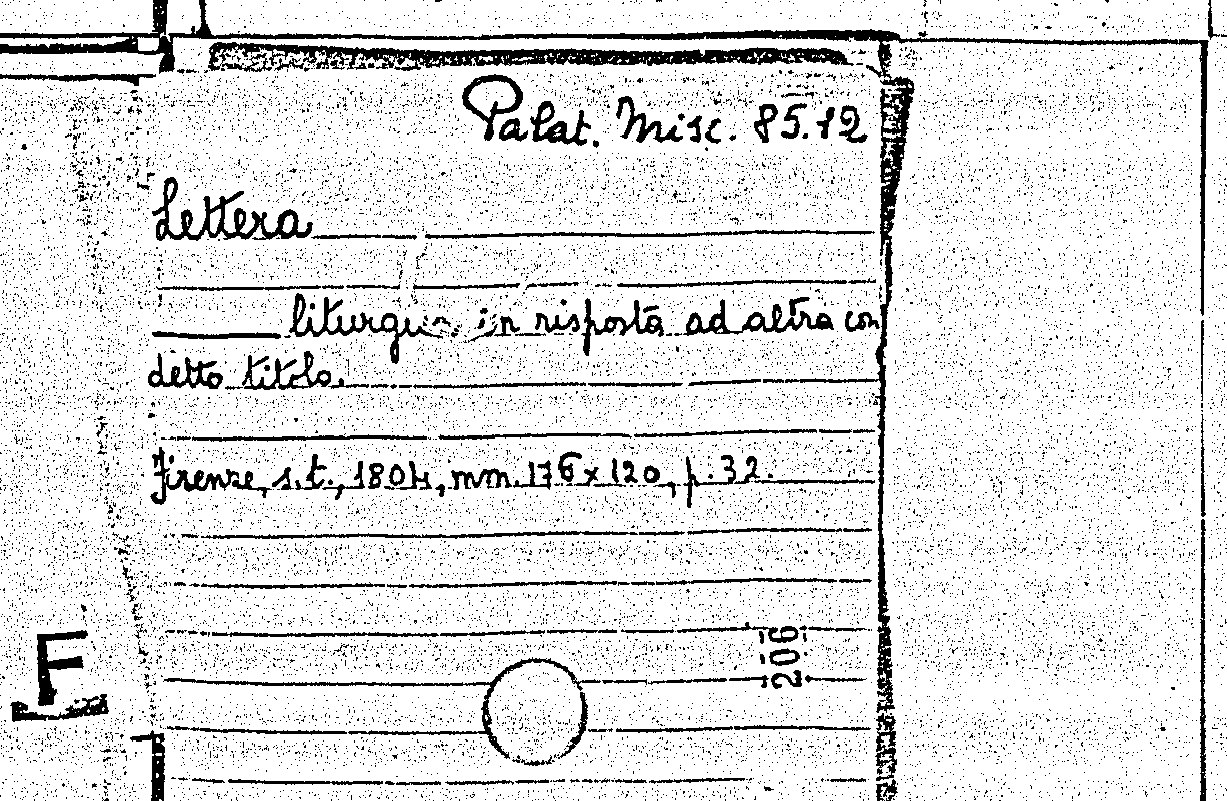 Palat. Misc. 85.12
Lettera
liturgica in risposta ad altra con
detto titolo.
Firenze, s.t., 1804, mm. 176x120, p. 32.
F
206